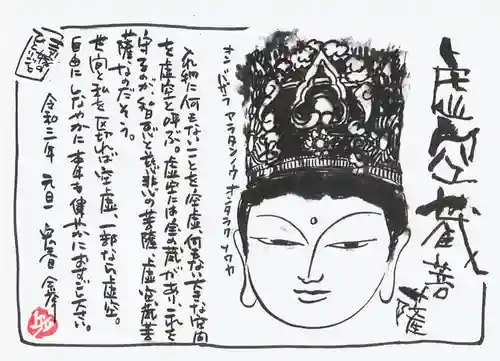 虚空蔵菩薩
オン バザラ アラタンノウ オンタラク ソワカ
入れ物に何もないことを空虚、何もない大きな空間
を虚空と呼ぶ。虚空には宝の蔵があり、これを
守るのが智恵と慈悲の菩薩、虚空蔵菩
薩なのだそう。
世空と私を区切れば空虚、一部なら虚空。
自由にしなやかに本年も健やかにおすごし下さい。
令和三年 元旦